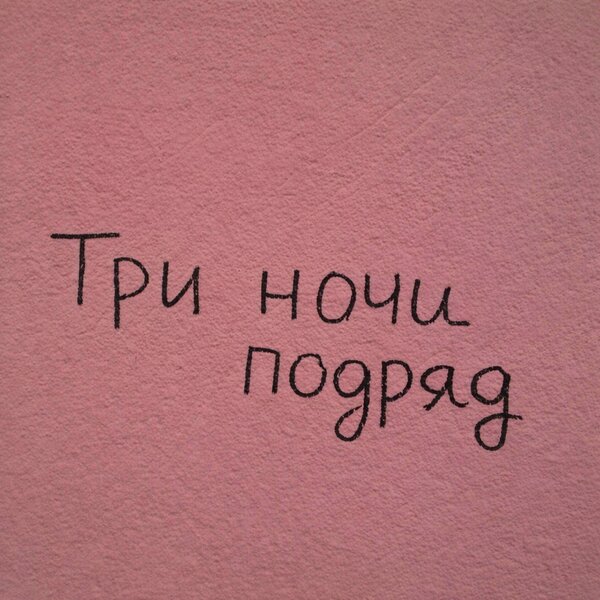 Три ночи
подряд